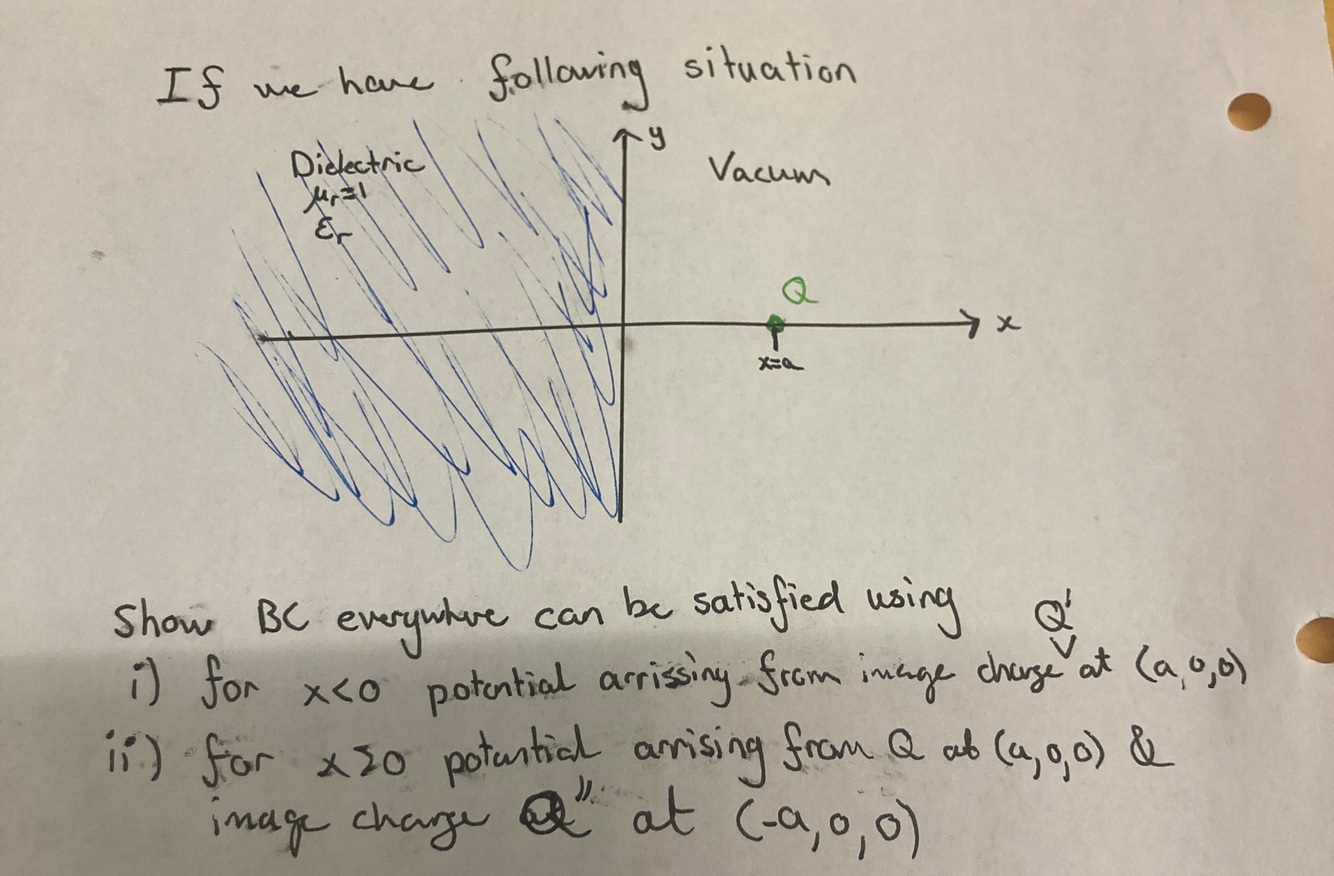 If we have following situation
y
Dielectric
μr=1
εr
Vacum
Q
x
x=a
Show BC everywhere can be satisfied using
Q'
i) for x<0 potential arrissing from image charge at (a,0,0)
ii) for x≥0 potential arrising from Q at (a,0,0) &
image charge Q" at (-a,0,0)